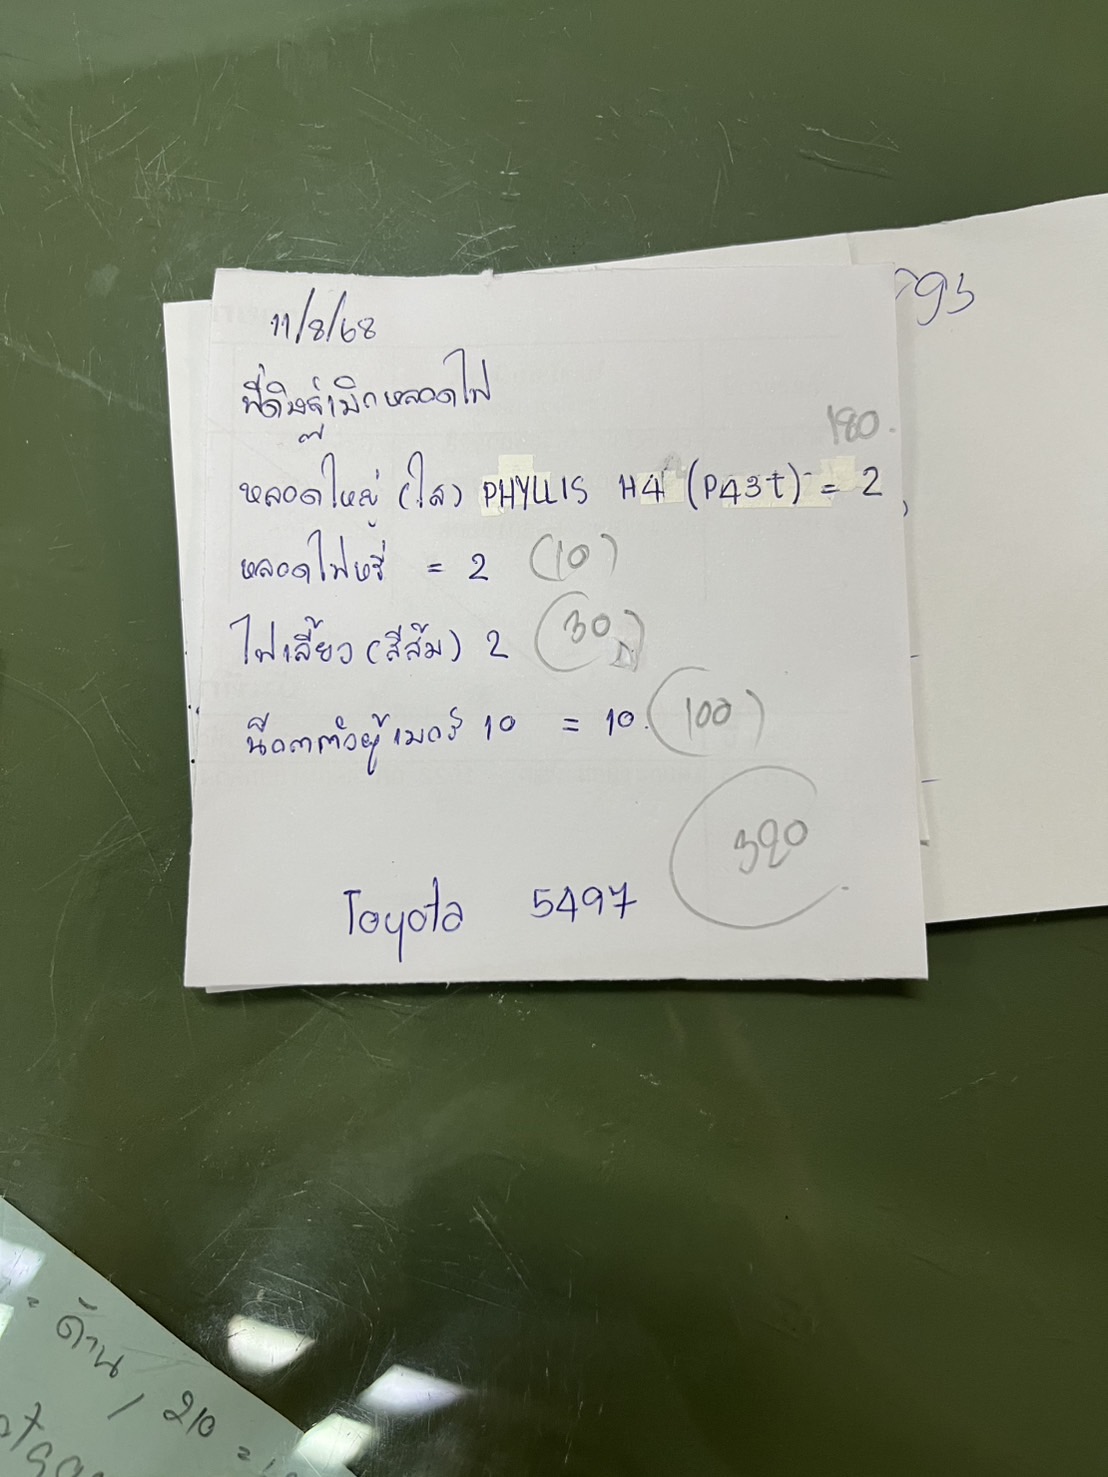 793
11/8/68
พี่ดิษฐ์เบิกหลอดไฟ
180.
หลอดใหญ่ (ใส) PHYLLIS H4 (P43t) = 2
หลอดไฟหรี่ = 2 (10)
ไฟเลี้ยว (สีส้ม) 2 (30)
น๊อตตัวผู้เบอร์ 10 = 10. (100)
320
Toyota 5497
= ด้าน, 210 =